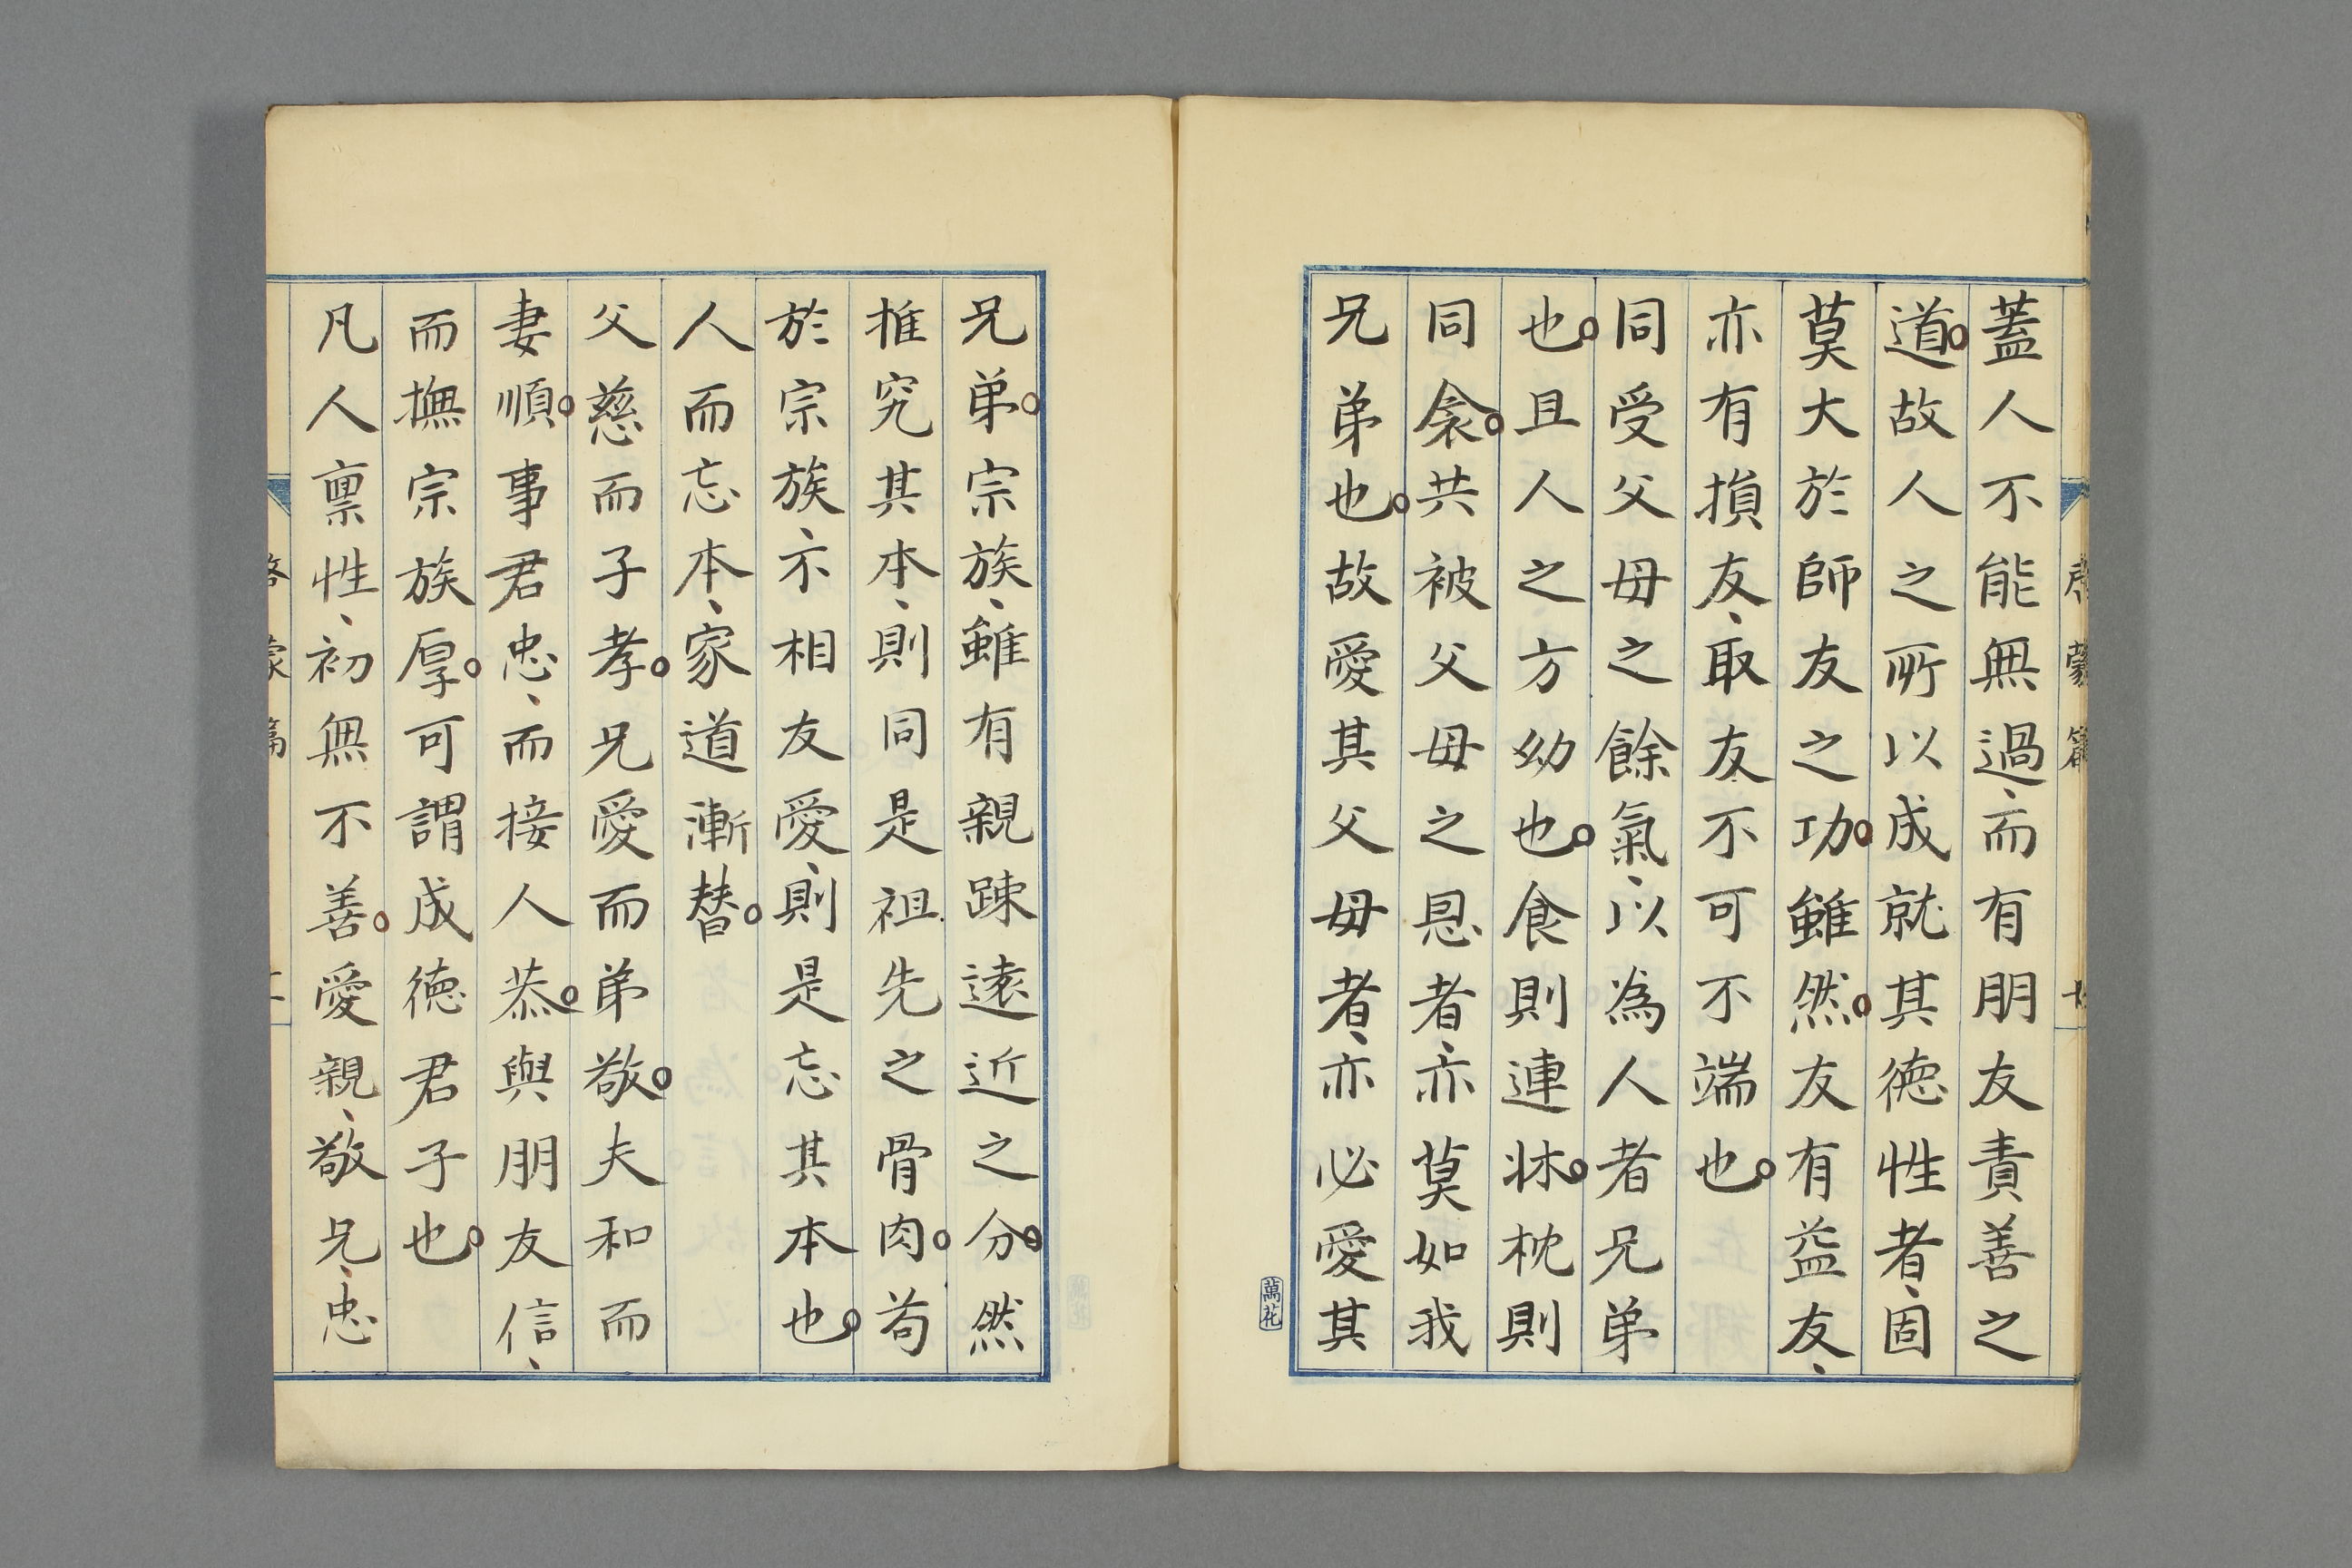 蓋人不能無過、而有朋友責善之
道。故人之所以成就其德性者、固
莫大於師友之功。雖然。友有益友、
亦有損友、取友不可不端也。
同受父母之餘氣、以為人者兄弟
也。且人之方幼也。食則連牀。枕則
同衾。共被父母之恩者、亦莫如我
兄弟也。故愛其父母者、亦必愛其
萬花
兄弟。宗族、雖有親踈遠近之分。然
推究其本、則同是祖先之骨肉。苟
於宗族、不相友愛、則是忘其本也。
人而忘本、家道漸替。
父慈而子孝。兄愛而弟敬。夫和而
妻順。事君忠、而接人恭。與朋友信、
而撫宗族厚。可謂成德君子也。
凡人禀性、初無不善。愛親、敬兄、忠